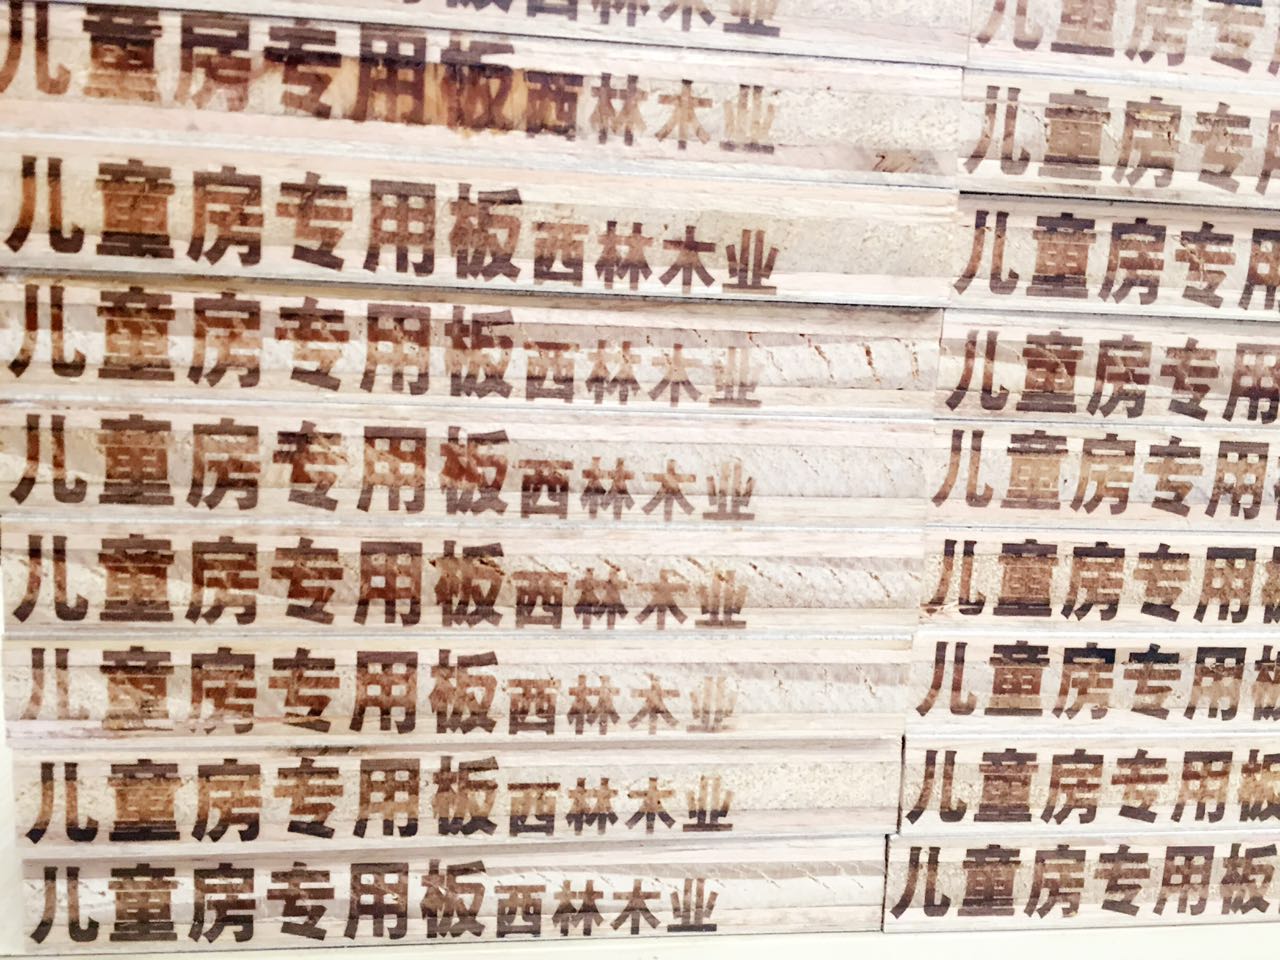 西林木业
儿童房专用板西林木业
儿童房专用板西林木业
儿童房专用板西林木业
儿童房专用板西林木业
儿童房专用板西林木业
儿童房专用板西林木业
儿童房专用板西林木业
儿童房专用板西林木业
儿童房专
儿童房专
儿童房专用
儿童房专用
儿童房专用
儿童房专用
儿童房专用板
儿童房专用板
儿童房专用板